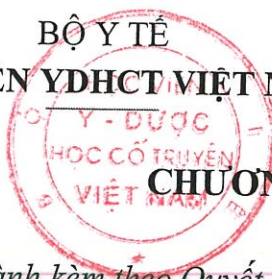 BỘ Y TẾ
EN YDHCT VIỆT N
Y - DƯỢC
HỌC CỔ TRUYỀN
VIỆT NAM
CHƯƠN
ành kèm theo Quyết